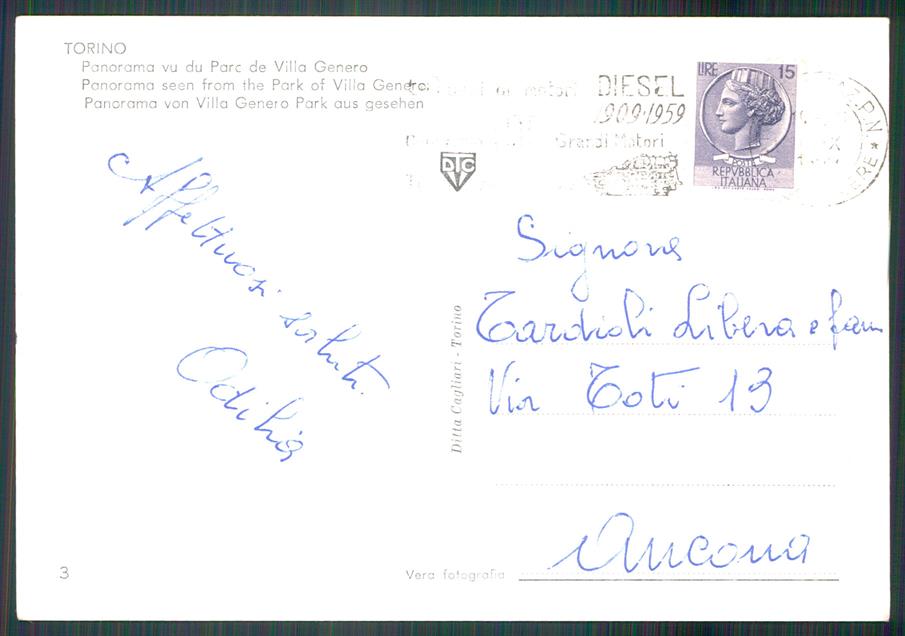 TORINO
Panorama vu du Parc de Villa Genero
Panorama seen from the Park of Villa Genero
Panorama von Villa Genero Park aus gesehen
motori DIESEL
1909-1959
Grandi Motori
LIRE 15
POSTE
REPVBBLICA
ITALIANA
DTC
Affettuosi saluti
Odilia
Ditta Cagliari - Torino
Signora
Tardioli Libera e fam
Via Toti 13
Ancona
3
Vera fotografia